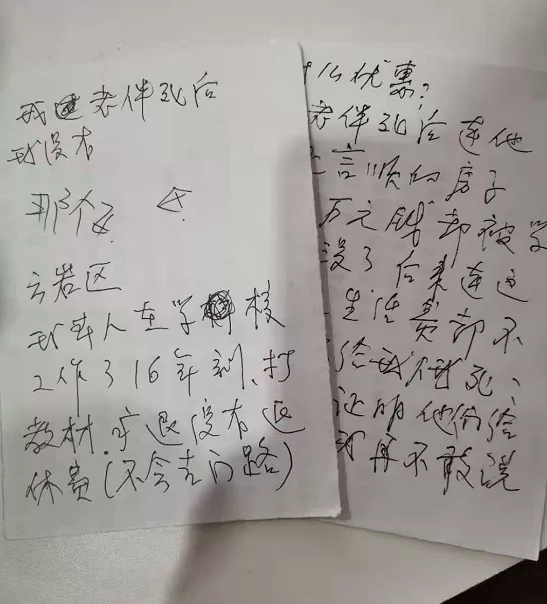 我 老伴死后
我没有
那个
云岩区
我本人在学校
工作了16年刻、打
教材. 退没有退
休费(不会走门路)
什么优惠?
老伴死后连他
言顺的房子
万元 却被学
没了后来连这
生活费都不
给
证明他份给
再不敢说